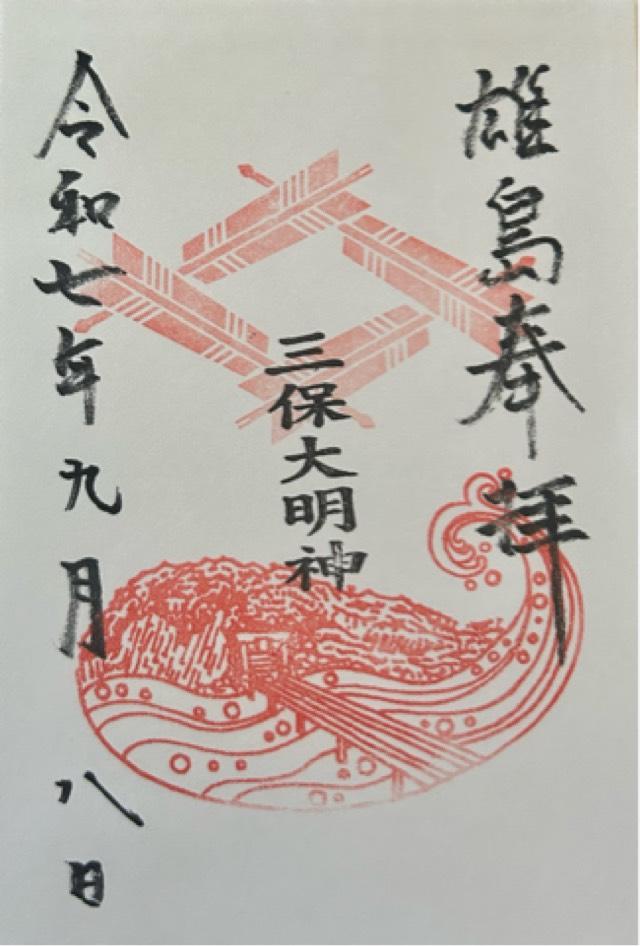 雄島奉拝
三保大明神
令和七年九月八日